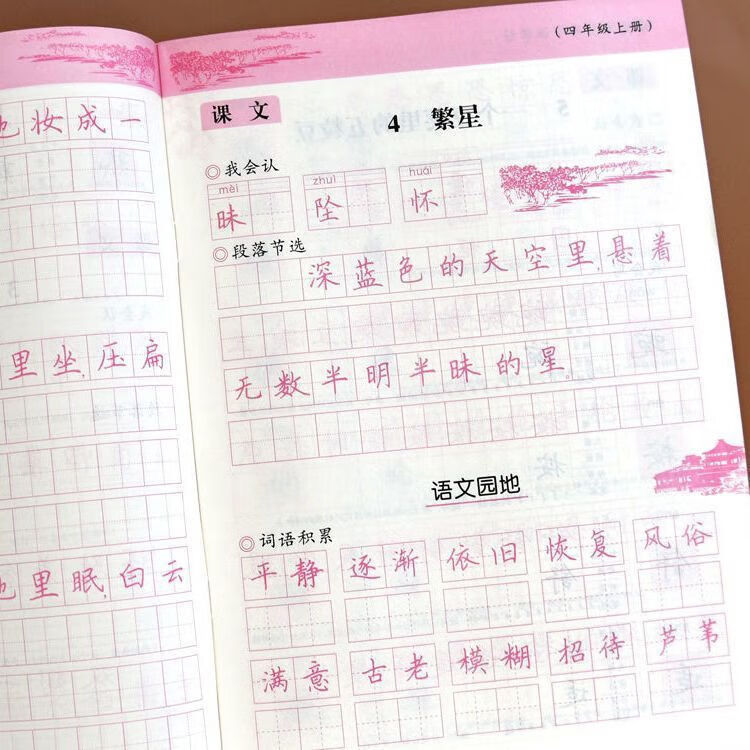 也妆成一
里坐,压扁
也里眠,白云
(四年级上册)
课 文
4 繁星
◎我会认
mèi zhuì huái
昧 坠 怀
◎段落节选
深蓝色的天空里,悬着
无数半明半昧的星。
语文园地
◎词语积累
平静 逐渐 依旧 恢复 风俗
满意 古老 模糊 招待 芦苇